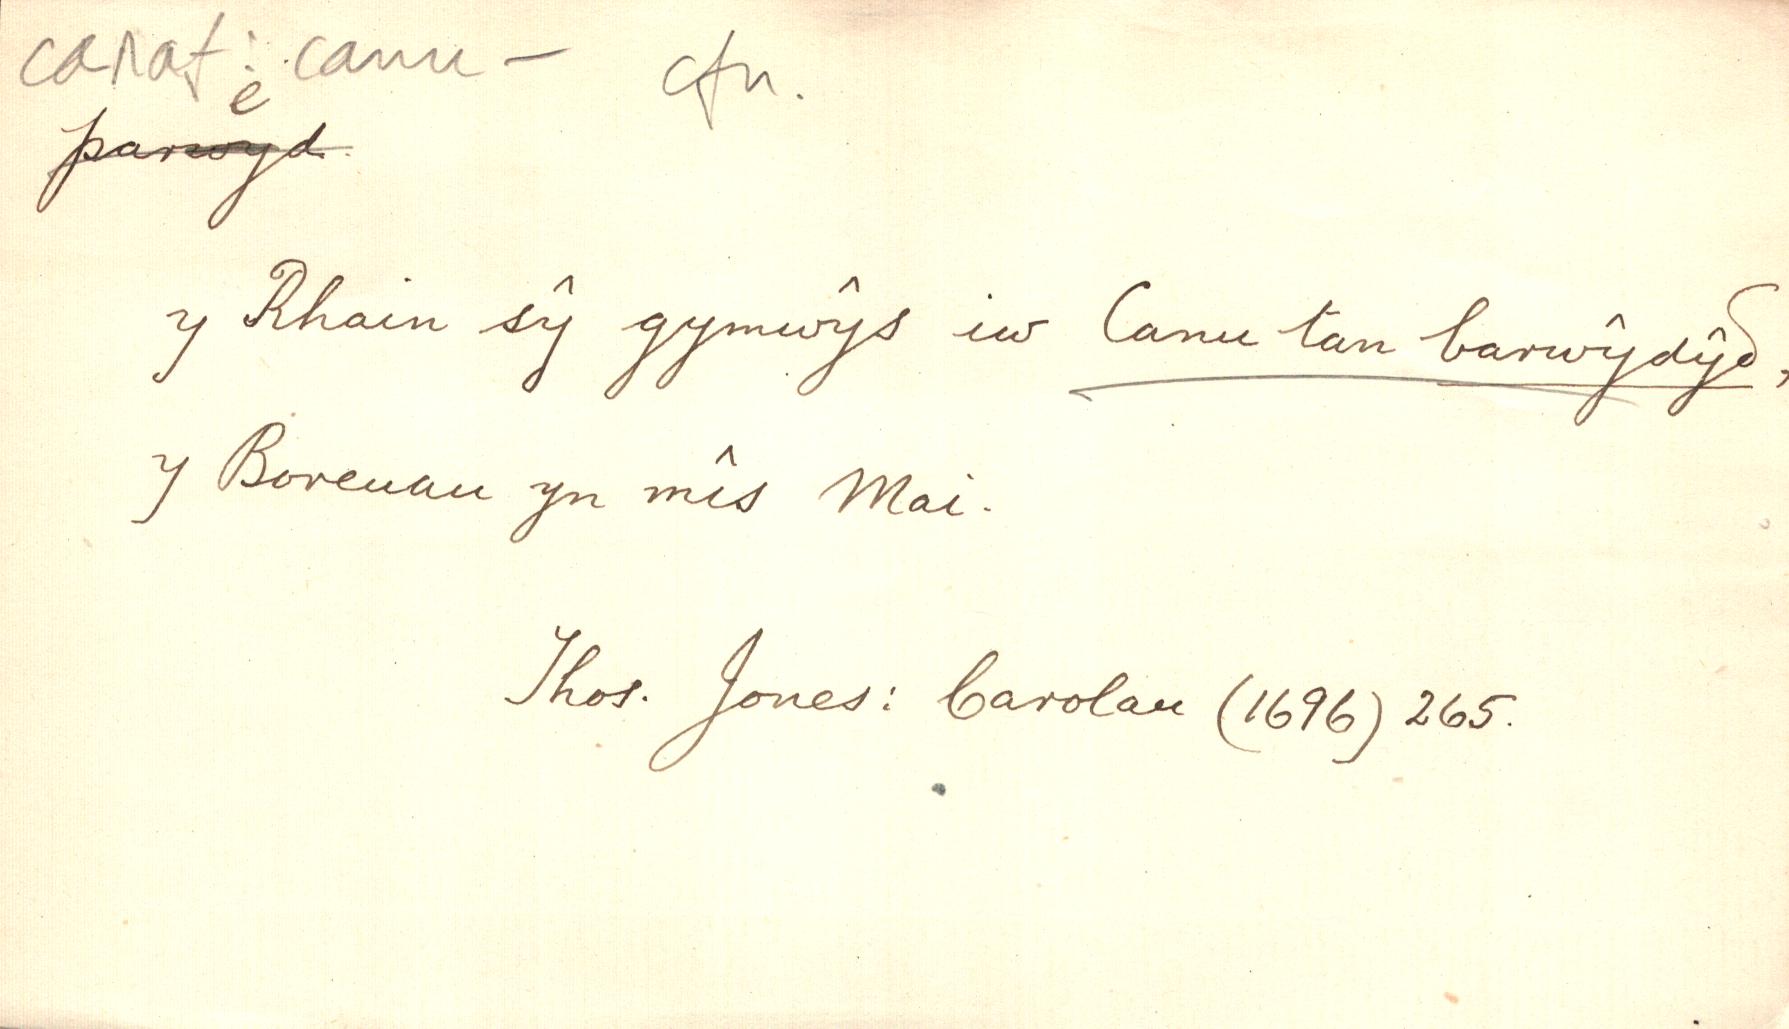 canaf : canu – cfn.
e
parwyd.
y Rhain sŷ gymwŷs iw Canu tan barwŷdŷd,
y Boreuau yn mîs Mai.
Thos. Jones: Carolau (1696) 265.